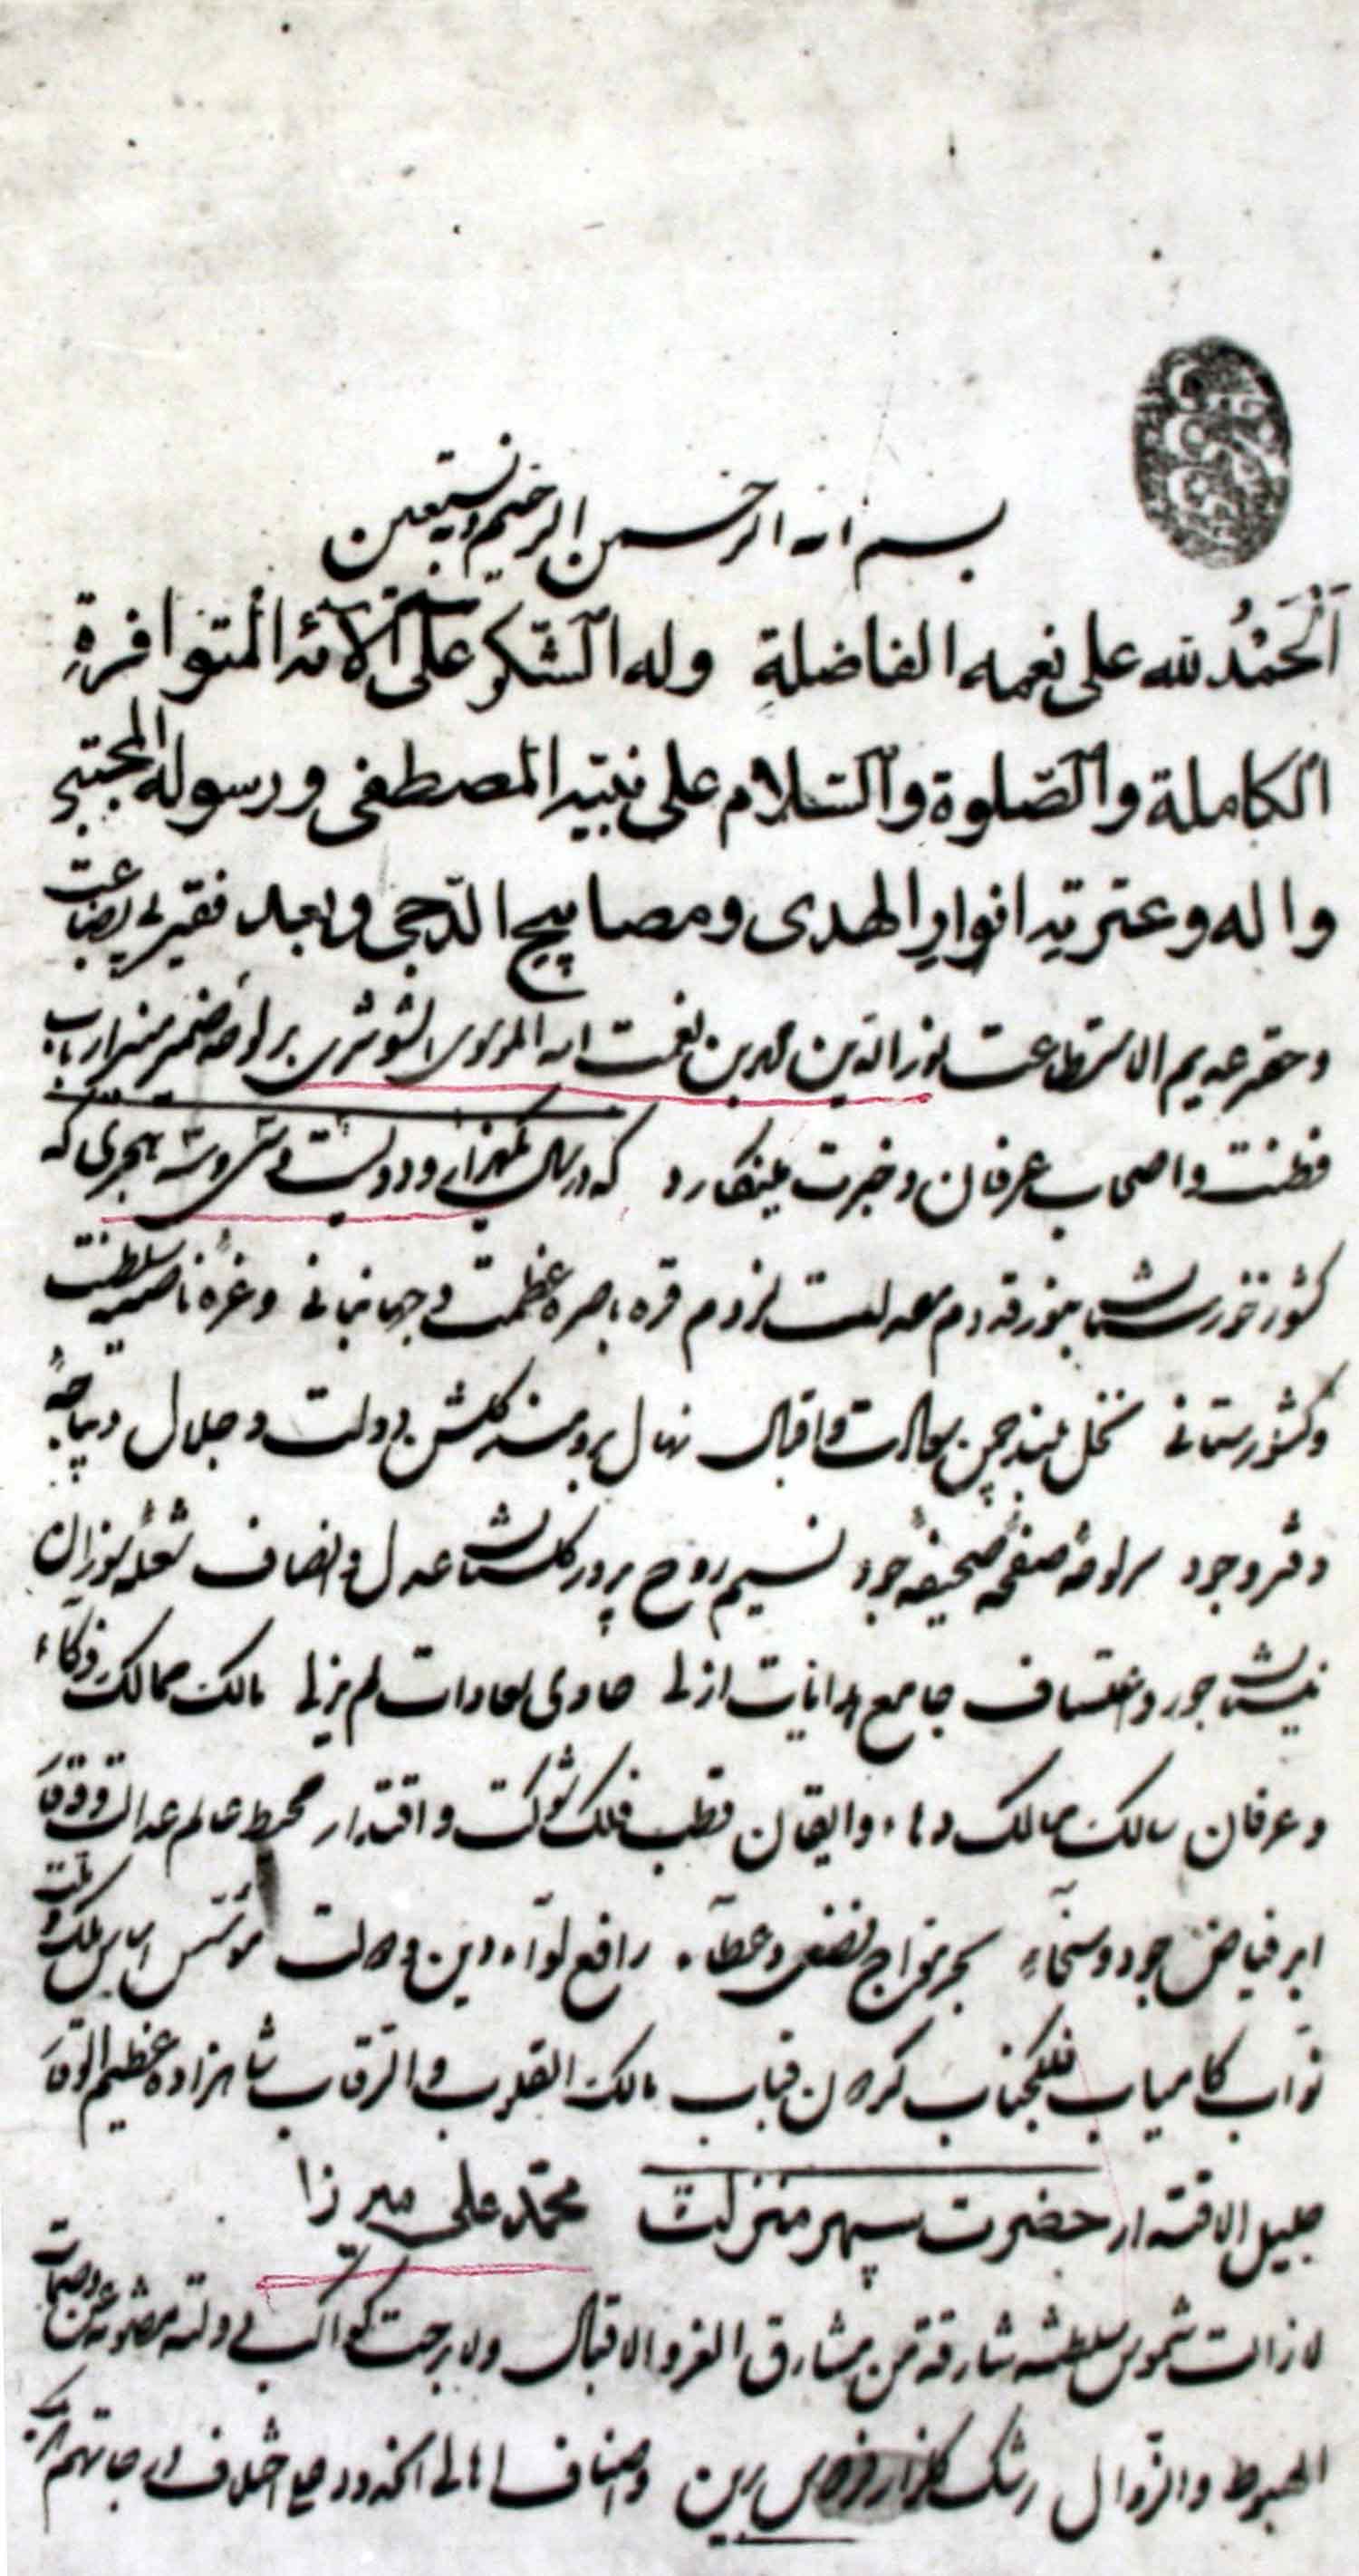 بسم الله الرحمن الرحیم و به نستعین
اَلْحَمْدُ لله علی نعمه الفاضلةِ وله الشکر علی آلائه المتوافرةِ
الکاملة والصّلوة والسّلام علی نبیّه المصطفی ورسوله المجتبی
واله وعترته انوارِ الهدی ومصابیح الدّجی وبعد فقیر بی بضاعت
و حقیر عدیم الاستطاعت نورالدین محمد بن نعمت الله الموسوی الشوشتری بر لوحه ضمیر منیر ارباب
فطنت و اصحاب عرفان و خبرت مینگارد که در سال یکهزار و دویست و سی و سه هجری که
کشور خوزستان بنور قدوم معدلت لزوم قره باصره عظمت و جهانبانی و غره ناصیه سلطنت
و کشورستانی نخل بند چمن سعادت و اقبال نهال برومند گلشن دولت و جلال دیباچهٔ
دفتر وجود سرلوحهٔ صفحه صحیفه جود نسیم روح پرور گلستان عدل و انصاف شعله سوزان
نیستان جور و اعتساف جامع هدایات ازلی حاوی سعادات لم یزلی مالک ممالک ذکاء
و عرفان سالک مسالک دهاء و ایقان قطب فلک شوکت و اقتدار محیط عالم عدالت و وقار
ابر فیاض جود و سخاء بحر مواج فضل و عطاء رافع لواء دین و دولت مؤسس اساس ملک و ملت
نوّاب کامیاب فلکجناب گردون قباب مالک القلوب والرقاب شاهزاده عظیم الوقار
جلیل الاقتدار حضرت سپهر منزلت محمّد علی میرزا
لازالت شموس سلطنته شارقة من مشارق العز والاقبال ولا برحت کواکب دولته مصونة عن وصمات
الهبوط والزوال رشک گلزار فردوس برین و اصناف اهالی آنحدود علی اختلاف درجاتهم